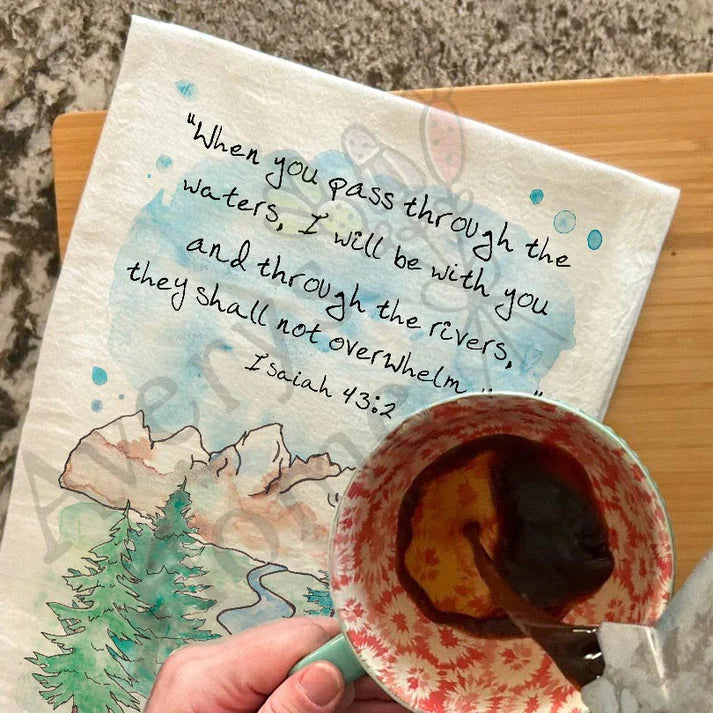 "When you pass through the
waters, I will be with you
and through the rivers,
they shall not overwhelm
Isaiah 43:2
Avery's